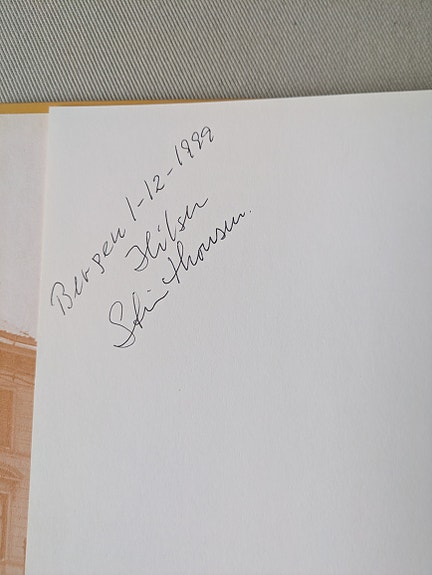 Bergen 1-12-1999
Hilsen
Stein Thomsen